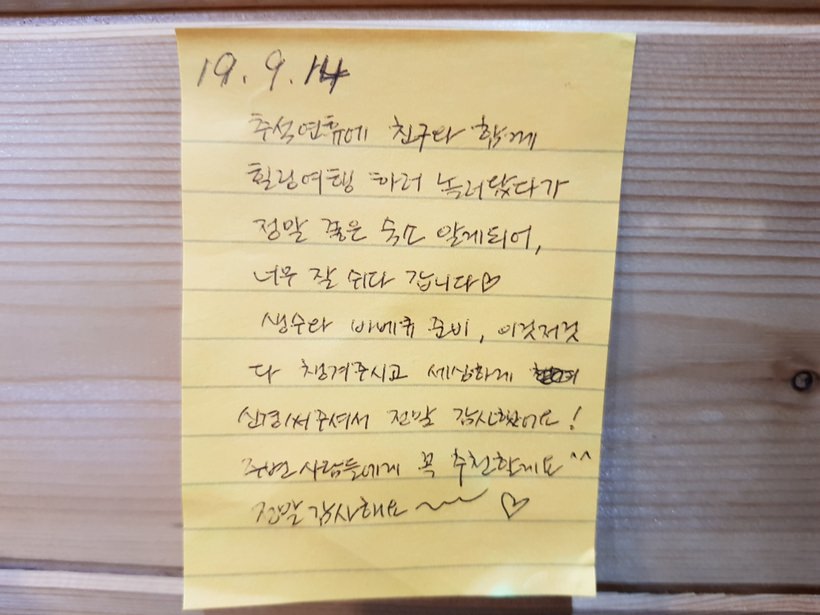 19. 9. 14
추석연휴에 친구와 함께
힐링여행 하러 놀러왔다가
정말 좋은 숙소 알게되어,
너무 잘 쉬다 갑니다♡
생수와 바베큐 준비, 이것저것
다 챙겨주시고 세심하게
신경써주셔서 정말 감사했어요!
주변사람들에게 꼭 추천할게요^^
정말감사해요~~ ♡